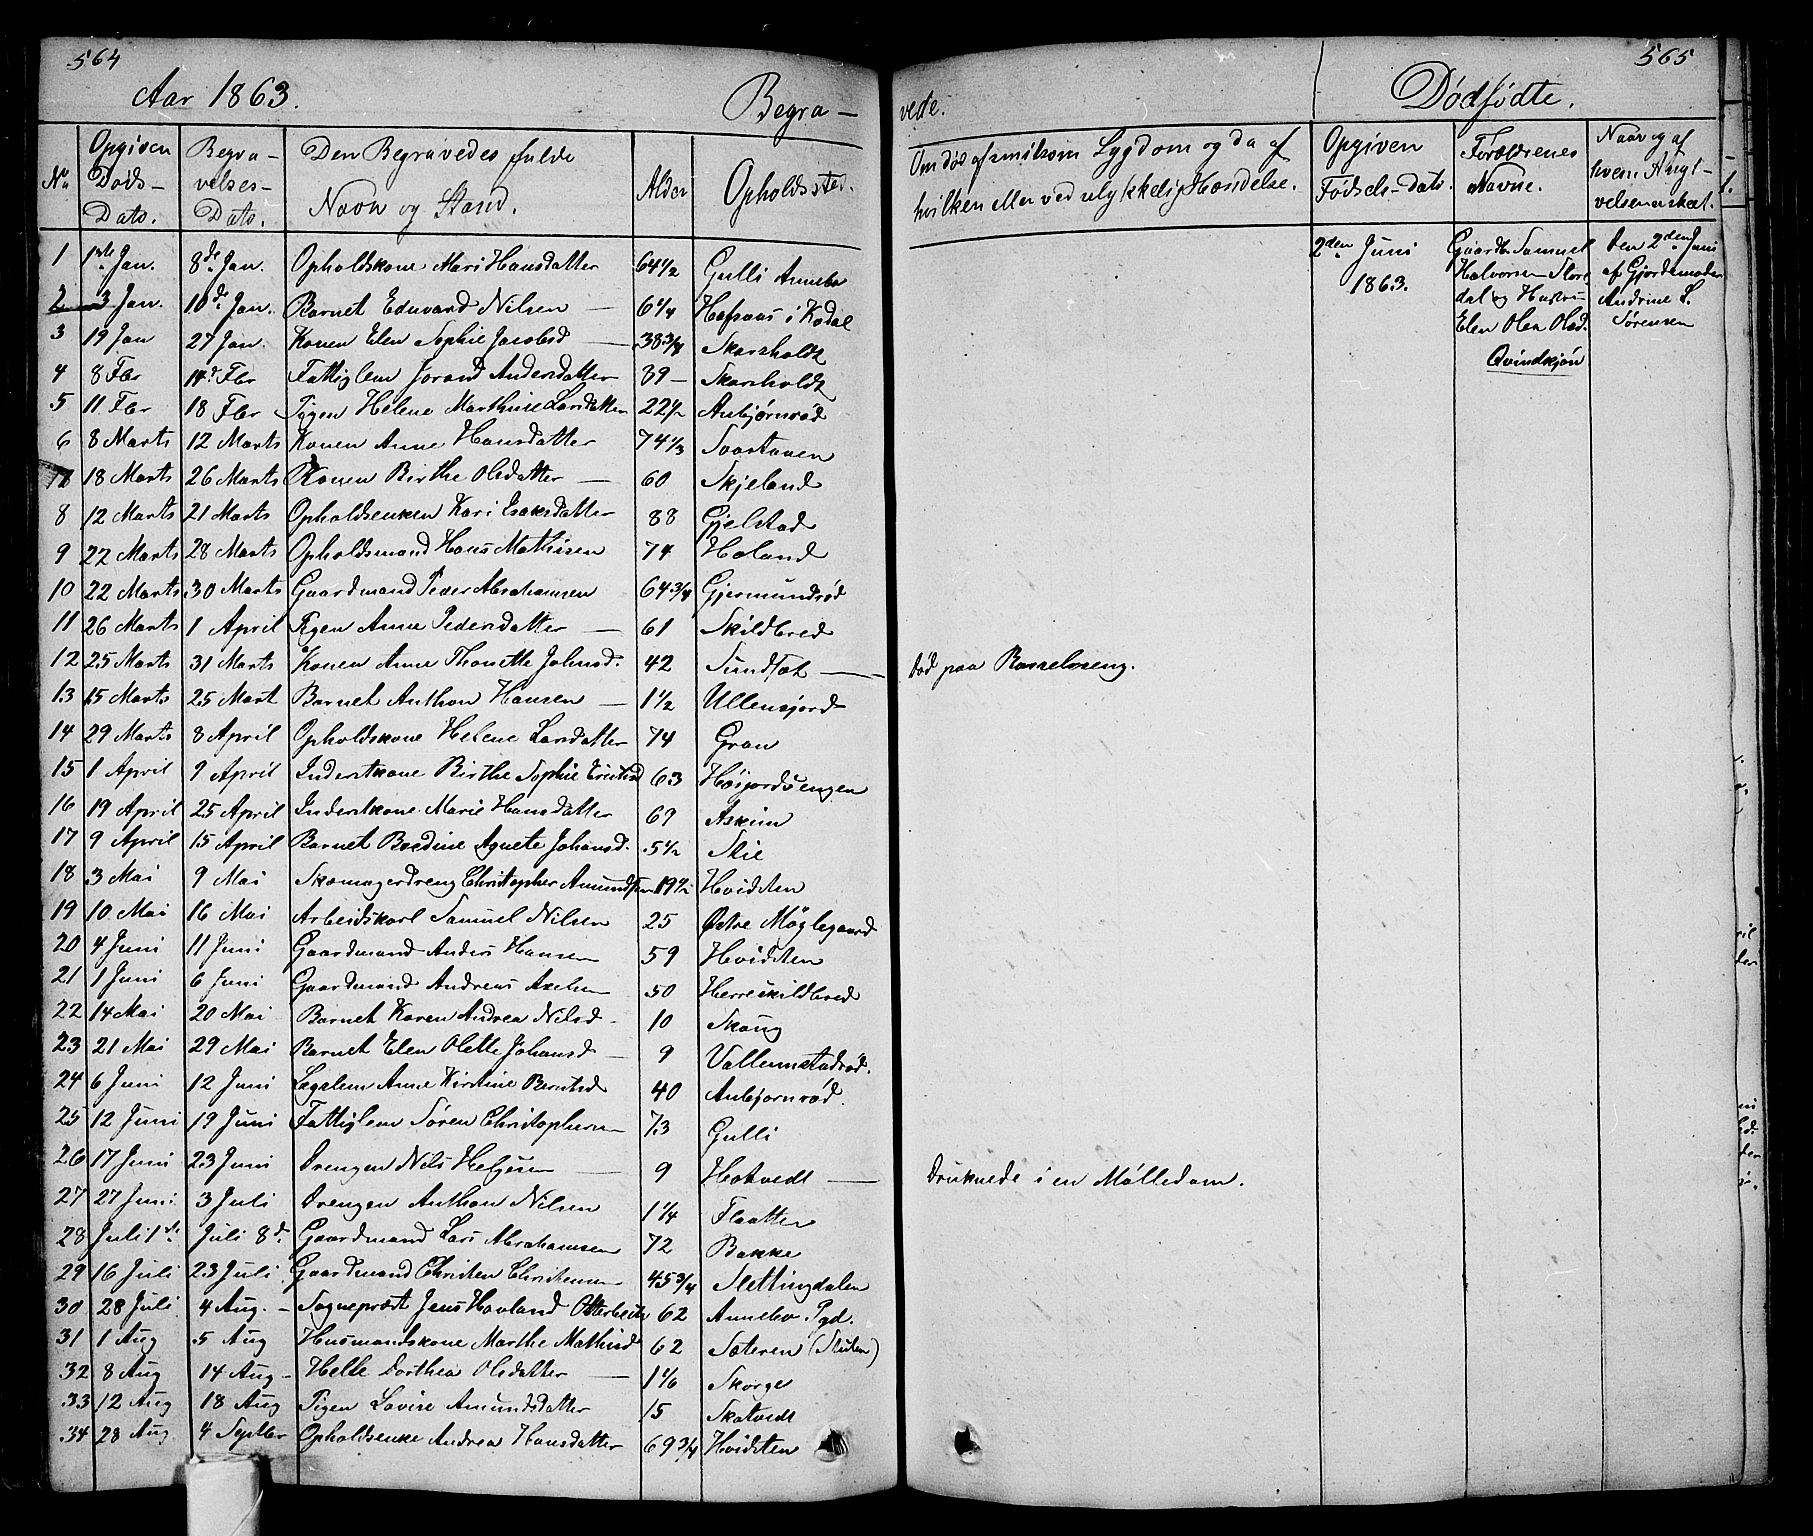 564
Aar 1863.
Begra-
No
Opgiven Døds-Dato.
Begravelses-Dato.
Den Begravedes fulde Navn og Stand.
Alder
Opholdssted.
1 1ste Jan. 8de Jan. Opholdskone Mari Hansdatter 64 1/2 Gulli Annebo
2 3 Jan. 10de Jan. Barnet Edvard Nilsen — 6 1/4 i Kodal
3 19 Jan 27 Jan. Konen Elen Sophie Jacobsd — 38 3/4 Skarsholdt
4 8 Fbr 14de Fbr Fattiglem Jorand Andersdatter 89 — Skarsholdt
5 11 Fbr 18 Fbr Pigen Helene Marthine Larsdatter 22 1/2 Anbjørnrød
6 8 Marts 12 Marts Konen Anne Hansdatter 74 1/3
7 18 Marts 26 Marts Konen Birthe Olsdatter — 60 Skjeland
8 12 Marts 21 Marts Opholdsenken Kari Isaksdatter 88 Gjelstad
9 22 Marts 28 Marts Opholdsmand Hans Mathisen 74 Haland
10 22 Marts 30 Marts Gaardmand Peder Abrahamsen 64 3/4 Gjermundrød
11 26 Marts 1 April Pigen Anne Pedersdatter — 61 Skildbred
12 25 Marts 31 Marts Konen Anne Thonette Johnsd. 42 Sundset —
13 15 Marts 25 Mart Barnet Anthon Hansen — 1 1/2
14 29 Marts 8 April Opholdskone Helene Larsdatter 74 Gran
15 1 April 9 April Inderstkone Birthe Sophie 63 Høijordsengen
16 19 April 25 April Inderstkone Marie Hansdatter 69 Askim
17 9 April 15 April Barnet Agnete Johansd. 5 1/2 Stie
18 3 Mai 9 Mai Skomagerdreng Christopher Amundsen 19 1/2 Hvidsten
19 10 Mai 16 Mai Arbeidskarl Samuel Nilsen 25 Østre Møglegaard
20 4 Juni 11 Juni Gaardmand Anders Hansen 59 Hvidsten
21 1 Juni 6 Juni Gaardmand Andreas Axelsen 50 Herreskildbred
22 14 Mai 20 Mai Barnet Karen Andrea Nilsd — 10 Skaug
23 21 Mai 29 Mai Barnet Elen Olette Johansd — 9
24 6 Juni 12 Juni Lægslem Anne Kirstine Berntsd 40 Anbjørnrød.
25 12 Juni 19 Juni Fattiglem Søren Christophersen 73 Gulli
26 17 Juni 23 Juni Drengen Nils Helgesen — 9 Hotvedt —
27 27 Juni 3 Juli Drengen Anthon Nilsen 1 1/4 Flaatten
28 Juli 1ste Juli 8de Gaardmand Lars Abrahamsen 72 Bakke
29 16 Juli 23 Juli Gaardmand Christen Christensen 45 3/4 Slettingdalen
30 28 Juli 4 Aug. — Sognepræst Jens Hovland Otterbeck 62 Annebo Pgd.
31 1 Aug 5 Aug Husmandskone Marthe Mathisd 62 Sæteren
32 8 Aug 14 Aug — Helle Dorthea Olsdatter — 1 1/6 Skorge
33 12 Aug 18 Aug Pigen Lovise Amundsdatter 15 Skatvedt
34 28 Aug 4 Septbr Opholdsenke Andrea Hansdatter 69 3/4 Hvidsten
565
vede.
Dødfødte.
Om død af smitsom Sygdom og da af
hvilken eller ved ulykkelig Hændelse.
Opgiven Fødsels-Dato.
Forældrenes Navne.
Naar og af hvem Angivelsen er skeet.
Død paa Rosselvseng.
Druknede i en Mølledam.
2den Juni
1863.
Gaardb. Samuel
Halvorsen Store
dal og Hustru
Elen Olea Olsd.
Qvindkjøn
Den 2den Juni
af Gjordemoder
Andrine L.
Sørensen